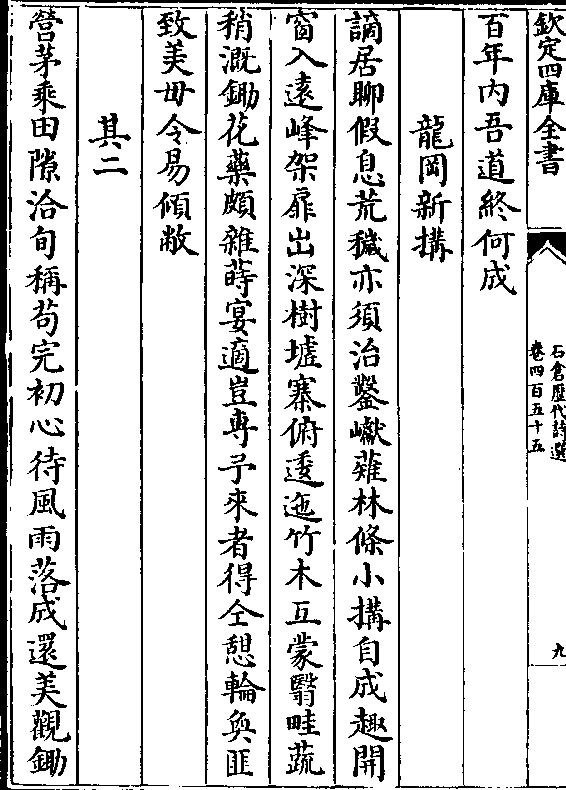 欽定四庫全書
石倉歷代詩選
卷四百五十五
九
百年内吾道終何成
龍岡新搆
謫居聊假息荒穢亦須治鑿巘薙林條小搆自成趣開
窗入遠峰架扉出深樹墟寨俯逶迤竹木互蒙翳畦蔬
稍溉鋤花藥頗雜蒔宴適豈專予來者得仝憇輪奐匪
致美毋令易傾敝
其二
營茅乘田隙洽旬稱苟完初心待風雨落成還美觀鋤